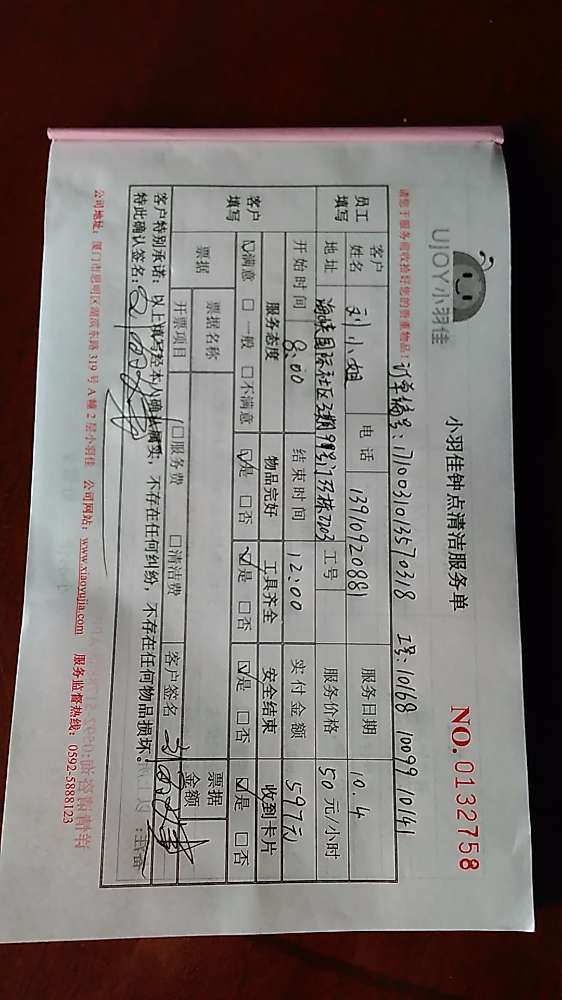 UJOY小羽佳
小羽佳钟点清洁服务单
NO. 0132758
请您于服务前收拾好您的贵重物品！ 订单编号：1710031013570318 工号：10168 10099 10141
员工填写 客户姓名 刘小姐 电话 13910920881 服务日期 10.4
地址 国际社区2期 2203 工号 服务价格 50元/小时
开始时间 8:00 结束时间 12:00 实付金额 597元
客户填写 服务态度 物品完好 工具齐全 安全结束 收到卡片
☑满意 □一般 □不满意 ☑是 □否 ☑是 □否 ☑是 □否 ☑是 □否
票据 票据名称 票据金额
开票项目 □服务费 □清洁费 客户签名
客户特别承诺：以上填写经本人确认属实，不存在任何纠纷，不存在任何物品损坏。
特此确认签名：
公司地址：厦门市思明区湖滨东路319号A幢2层小羽佳 公司网站：www.xiaoyujia.com 服务监督热线：0592-5888123